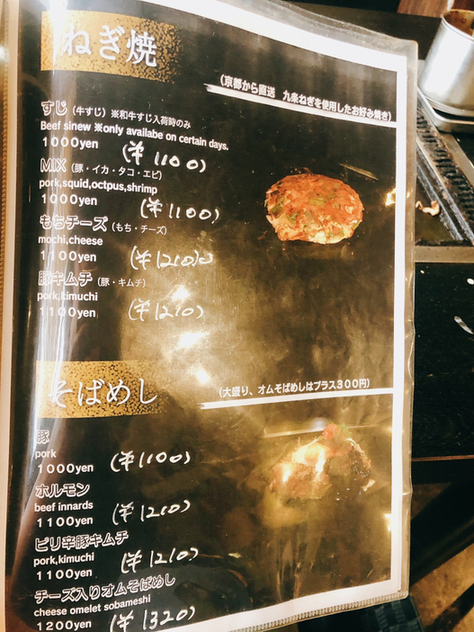 ねぎ焼
(京都から直送 九条ねぎを使用したお好み焼き)
すじ(牛すじ)※和牛すじ入荷時のみ
Beef sinew ※only availabe on certain days.
1000yen (¥1100)
MIX(豚・イカ・タコ・エビ)
pork,squid,octpus,shrimp
1000yen (¥1100)
もちチーズ(もち・チーズ)
mochi,cheese
1100yen (¥1210)
豚キムチ(豚・キムチ)
pork,kimuchi
1100yen (¥1210)
そばめし
(大盛り、オムそばめしはプラス300円)
豚
pork
1000yen (¥1100)
ホルモン
beef innards
1100yen (¥1210)
ピリ辛豚キムチ
pork,kimuchi
1100yen (¥1210)
チーズ入りオムそばめし
cheese omelet sobameshi
1200yen (¥1320)